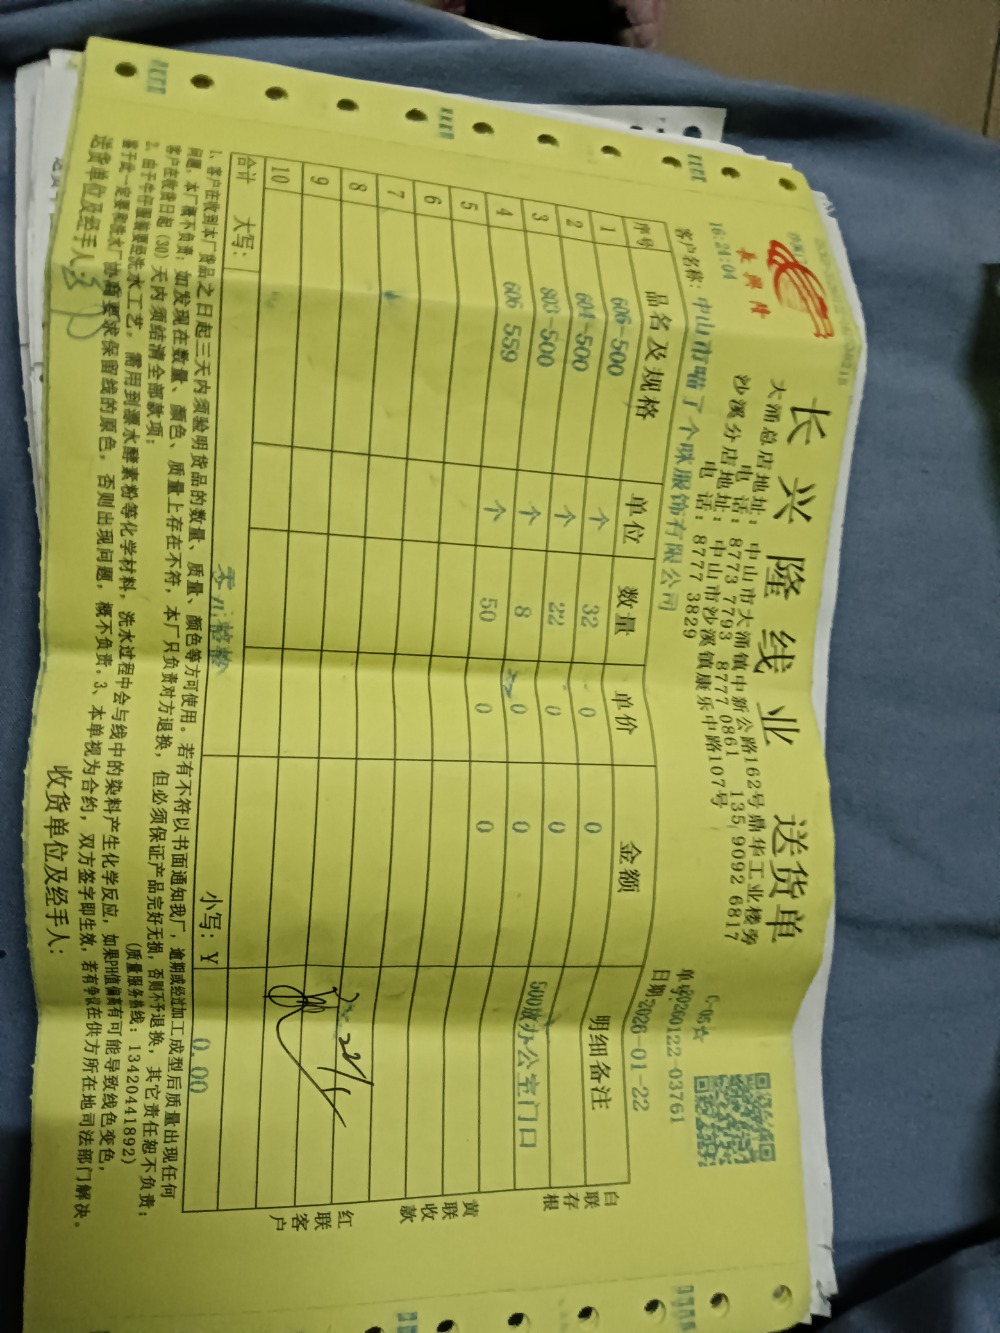 长兴隆线业 送货单
大涌总店地址：中山市大涌镇中新公路162号鼎华工业楼旁
电 话：8773 7793 8777 0861 135 9092 6817
沙溪分店地址：中山市沙溪镇康乐中路107号
电 话：8777 3829
長興隆
16:24:04
C-05☆
单号:20260122-03761
客户名称: 中山市喵了个咪服饰有限公司
日期:2026-01-22
序号 品名及规格 单位 数量 单价 金额 明细备注
1 606-500 个 32 0 0
2 604-500 个 22 0 0
3 803-500 个 8 0 0 500放办公室门口
4 606 559 个 50 0 0
5
6
7
8
9
10
合计 大写: 零元整 小写: Y 0.00
白联存根
黄联收款
红联客户
1、客户在收到本厂货品之日起三天内须验明货品的数量、质量、颜色等方可使用。若有不符以书面通知我厂，逾期或经过加工成型后质量出现任何
问题，本厂概不负责；如发现在数量、颜色、质量上存在不符，本厂只负责对方退换，但必须保证产品完好无损，否则不予退换，其它责任恕不负责；
客户在收货日起（30）天内须结清全部款项； (质量服务热线: 13420441892)
2、由于牛仔服装要经洗水工艺，需用到漂水酵素粉等化学材料，洗水过程中会与线中的染料产生化学反应，如果PH值偏高有可能导致线色变色，
鉴于此一定要和洗水厂协商要求保留线的原色，否则出现问题，概不负责。3、本单视为合约，双方签字即生效，若有争议在供方所在地司法部门解决。
送货单位及经手人: 收货单位及经手人: